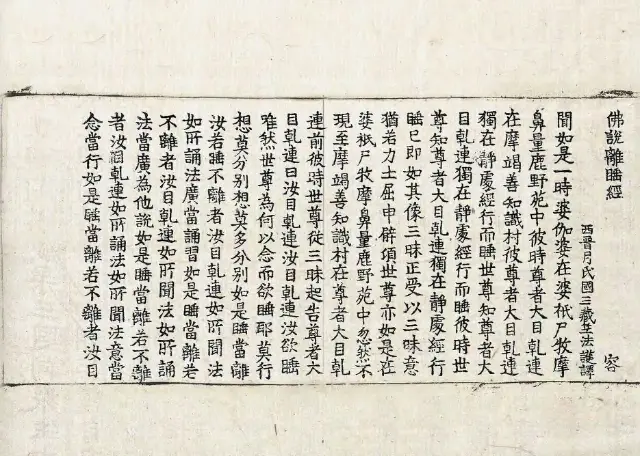 佛説離睡經
西晉月氏國三藏竺法護譯 容
聞如是一時婆伽婆在婆祇尸牧摩
鼻量鹿野苑中彼時尊者大目乹連
在摩竭善知識村彼尊者大目乹連
獨在靜處經行而睡世尊知尊者大
目乹連獨在靜處經行而睡彼時世
尊知尊者大目乹連獨在靜處經行
睡已即如其像三昧正受以三昧意
猶若力士屈申臂頃世尊亦如是在
婆祇尸牧摩鼻量鹿野苑中忽然不
現至摩竭善知識村在尊者大目乹
連前彼時世尊從三昧起告尊者大
目乹連曰汝目乹連汝目乹連汝欲睡
唯然世尊為何以念而欲睡耶莫行
想莫分別想莫多分別如是睡當離
汝若睡不離者汝目乹連如所聞法
如所誦法廣當誦習如是睡當離若
不離者汝目乹連如所聞法如所誦
法當廣為他説如是睡當離若不離
者汝目乹連如所誦法如所聞法意當
念當行如是睡當離若不離者汝目